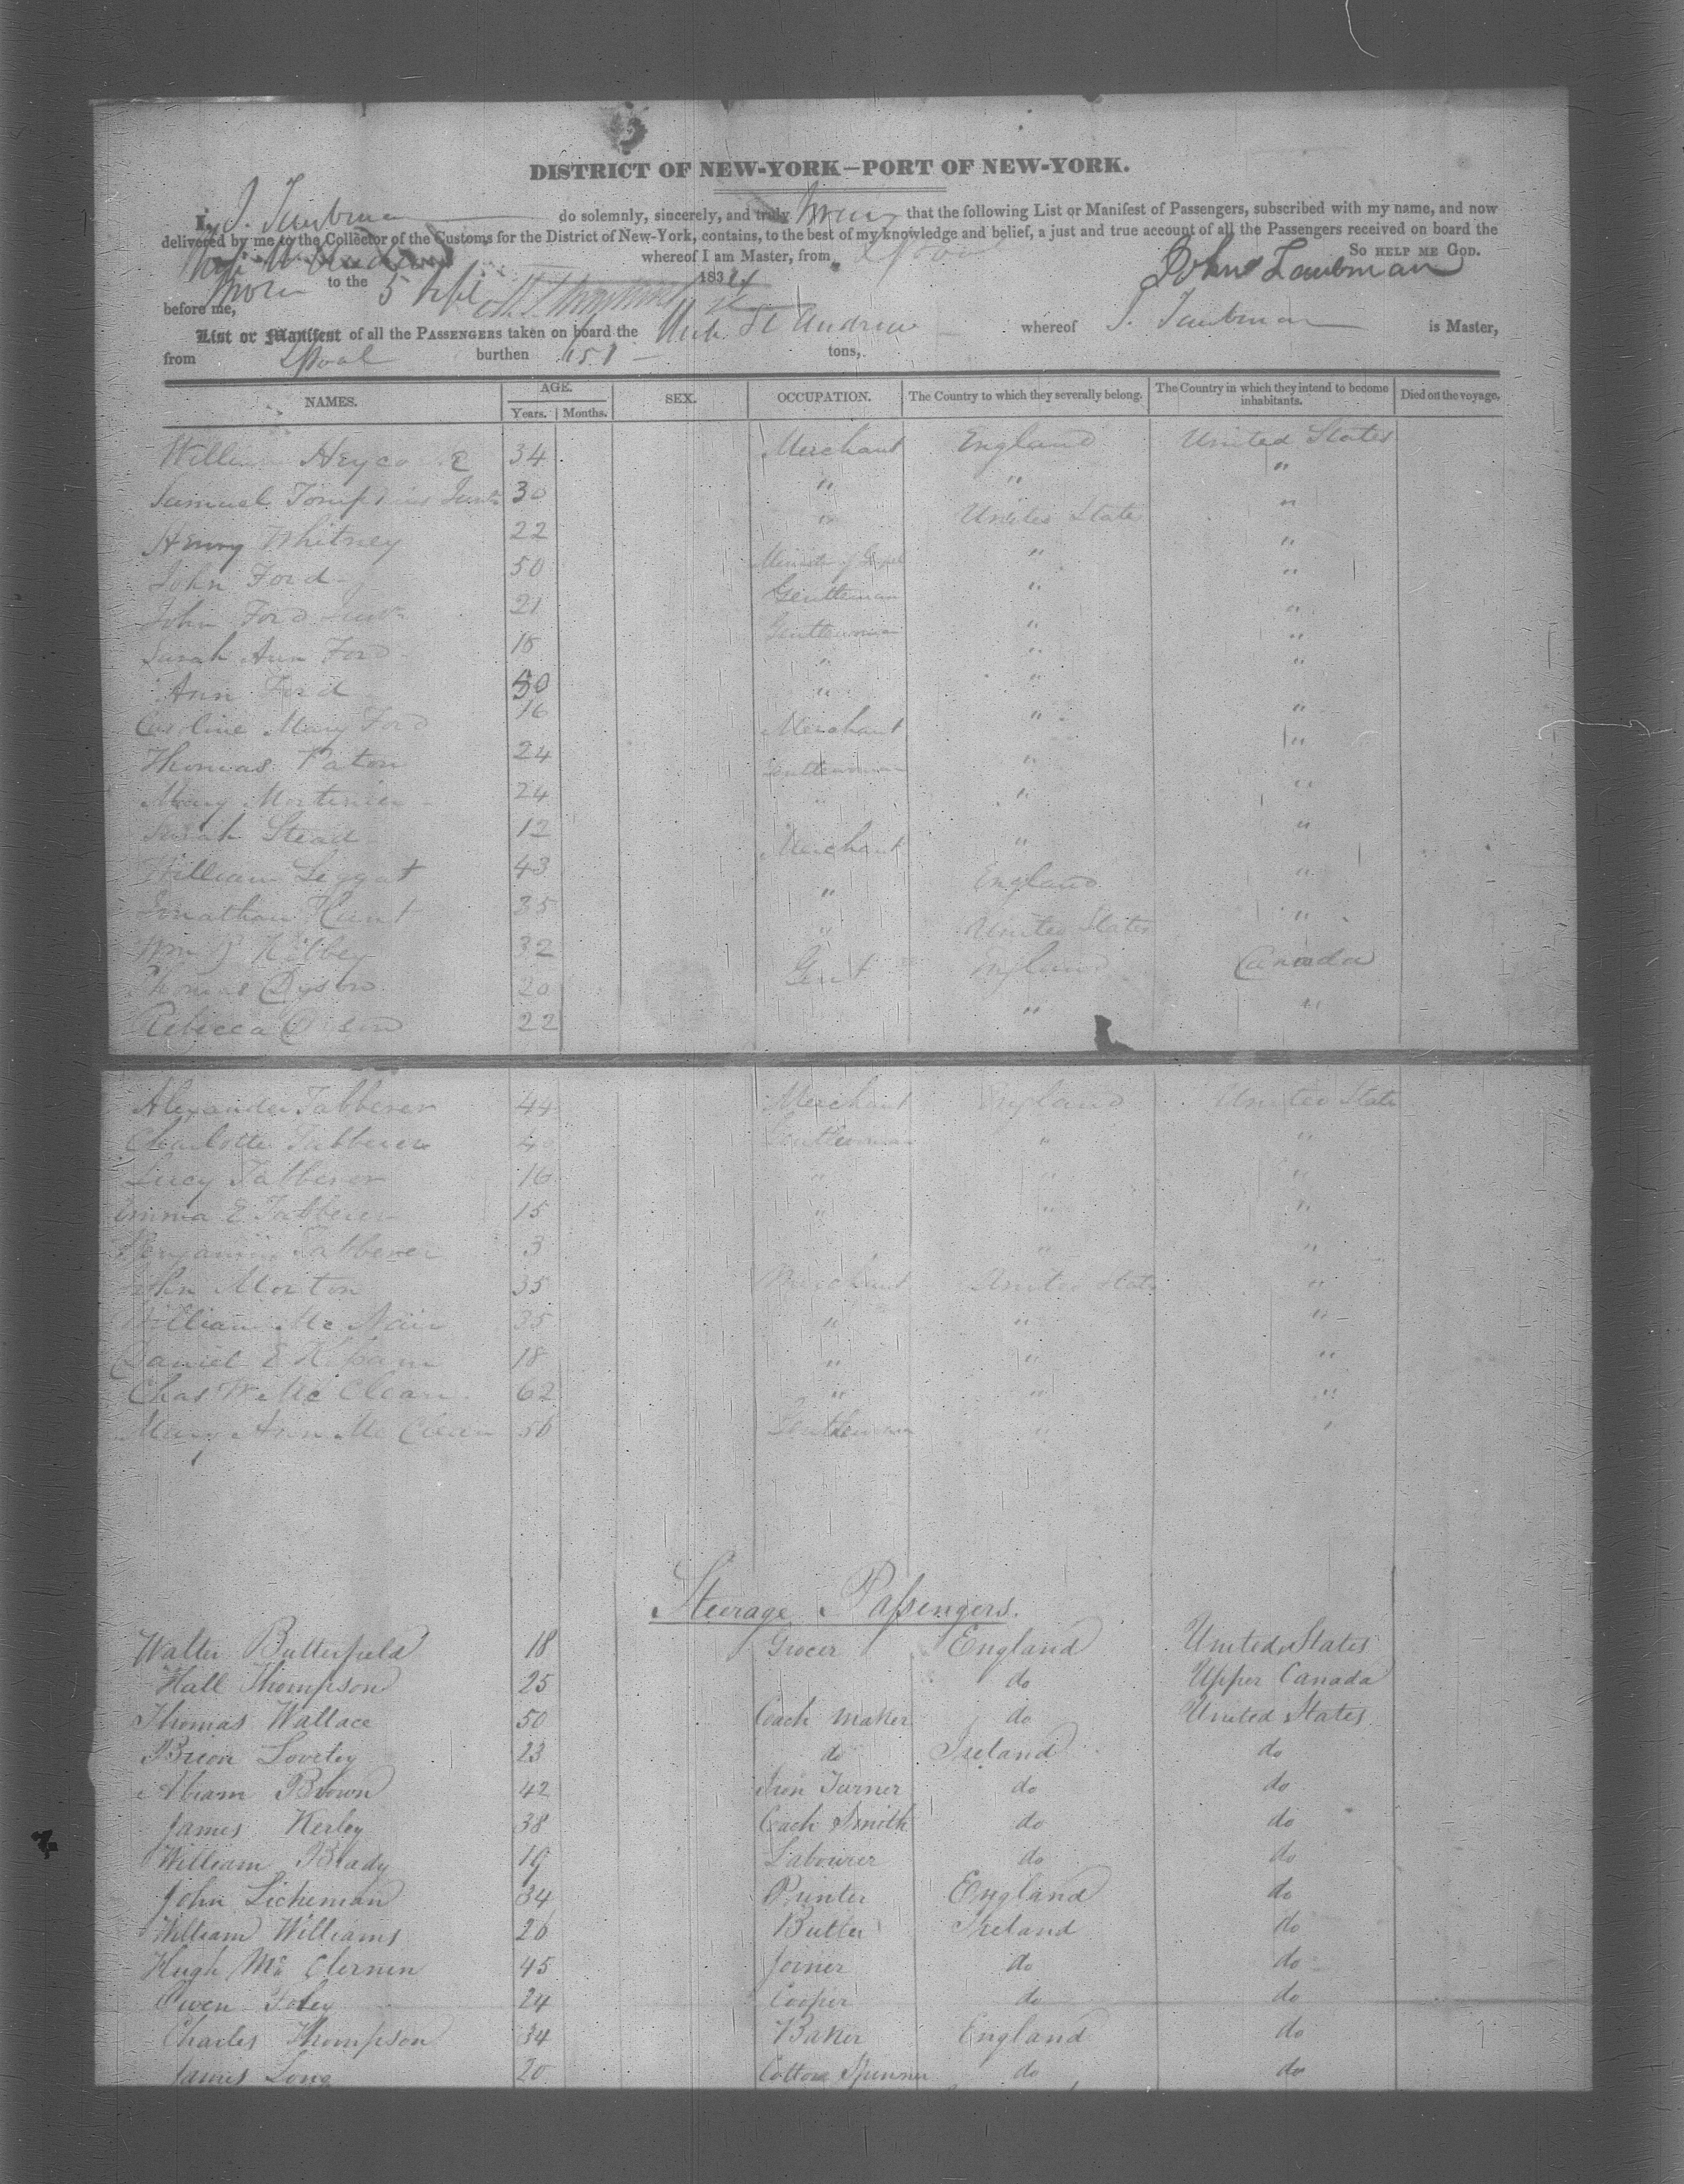 DISTRICT OF NEW-YORK—PORT OF NEW-YORK.
I, J. Taubman do solemnly, sincerely, and truly swear that the following List or Manifest of Passengers, subscribed with my name, and now
delivered by me to the Collector of the Customs for the District of New-York, contains, to the best of my knowledge and belief, a just and true account of all the Passengers received on board the
whereof I am Master, from L'pool So HELP ME GOD.
Sworn to the 5 Sept 1834 John Taubman
before me,
List or Manifest of all the PASSENGERS taken on board the St Andrew whereof J. Taubman is Master,
from L'pool burthen 651 tons,
NAMES. AGE. Years. Months. SEX. OCCUPATION. The Country to which they severally belong. The Country in which they intend to become inhabitants. Died on the voyage.
William 34 Merchant England United States
Samuel Tompkins Junr 30 " " "
Henry Whitney 22 " United States "
John Ford 50 Minister of Gospel " "
John Ford Junr 21 Gentleman " "
Sarah Ann Ford 18 Gentlewoman " "
Ann Ford 50 " " "
Caroline Mary Ford 16 " " "
Thomas Paton 24 Merchant " "
Mary Mortimer 24 Gentlewoman " "
Sarah Stead 12 " " "
William Leggat 43 Merchant " "
Jonathan Hunt 35 " England "
Wm P Kibbey 32 " United States "
Thomas Dyson 20 Gent England Canada
Rebecca Dyson 22 " "
Alexander Tabberer 44 Merchant England United States
Charlotte Tabberer 40 Gentlewoman " "
Lucy Tabberer 16 " " "
Emma E Tabberer 15 " " "
Benjamin Tabberer 3 " "
John Morton 35 Merchant United States "
William Mc Nair 35 " " "
Daniel E 18 " " "
Chas W Mc Clean 62 " " "
Mary Ann Mc Clean 56 Gentlewoman " "
Steerage Passengers.
Walter Butterfield 18 Grocer England United States
Hall Thompson 25 do Upper Canada
Thomas Wallace 50 Coach Maker do United States
Brien Lovely 23 do Ireland do
Abram Brown 42 Iron Turner do do
James Kerley 38 Coach Smith do do
William Brady 19 Labourer do do
John Licheman 34 Printer England do
William Williams 26 Butler Ireland do
Hugh Mc Clernen 45 Joiner do do
Owen Foley 24 Cooper do do
Charles Thompson 34 Baker England do
James Long 20 Cotton Spinner do do